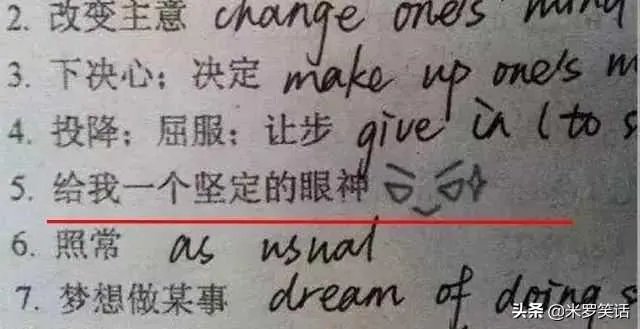 2. 改变主意 change one's mind
3. 下决心；决定 make up one's m
4. 投降；屈服；让步 give in (to s
5. 给我一个坚定的眼神
6. 照常 as usual
7. 梦想做某事 dream of doing s
头条 @米罗笑话